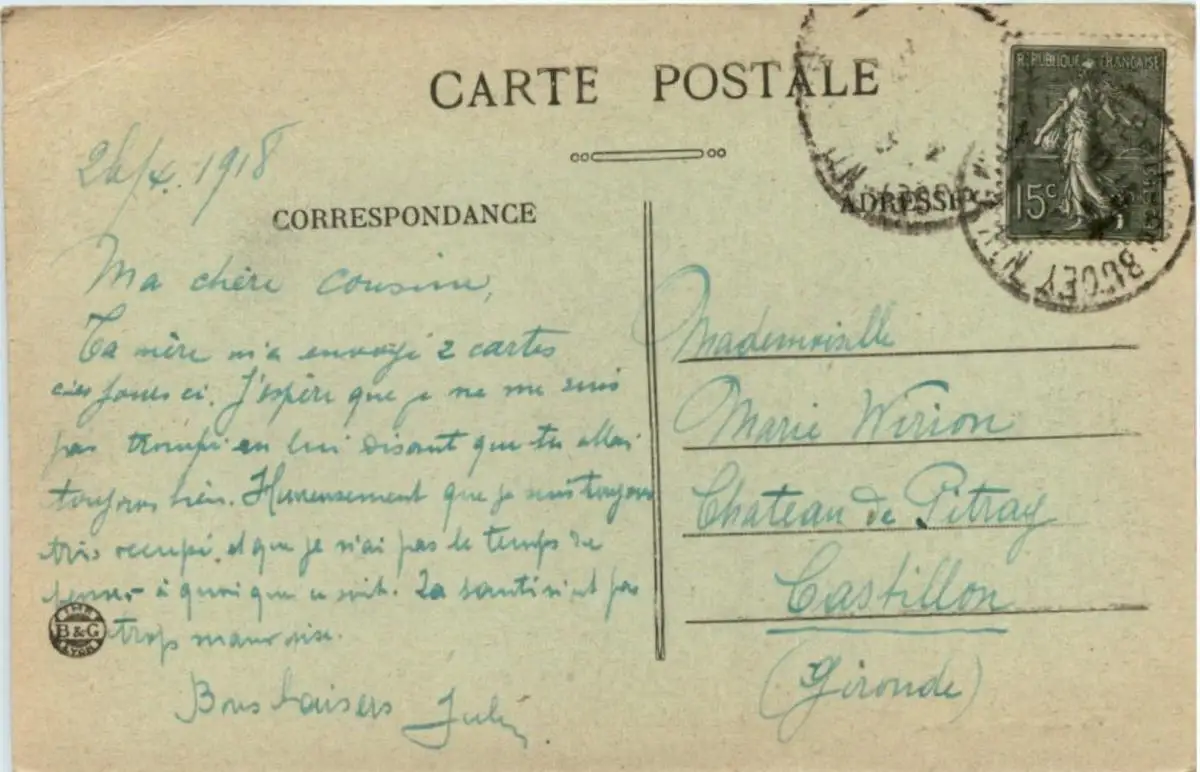 CARTE POSTALE
RÉPUBLIQUE FRANÇAISE
15c
1918
CORRESPONDANCE
ADRESSE
BUGEY
Ma chère cousine,
Ta mère m'a envoyé 2 cartes
ces jours ci. J'espère que je ne me suis
pas trompé en lui disant que tu allais
toujours bien. Heureusement que je suis toujours
très occupé, et que je n'ai pas le temps de
penser à quoi que ce soit. La santé n'est pas
trop mauvaise.
Bons baisers
Mademoiselle
Marie Wirion
Chateau de Pitray
Castillon
(Gironde)
IMP
B & G
LYON